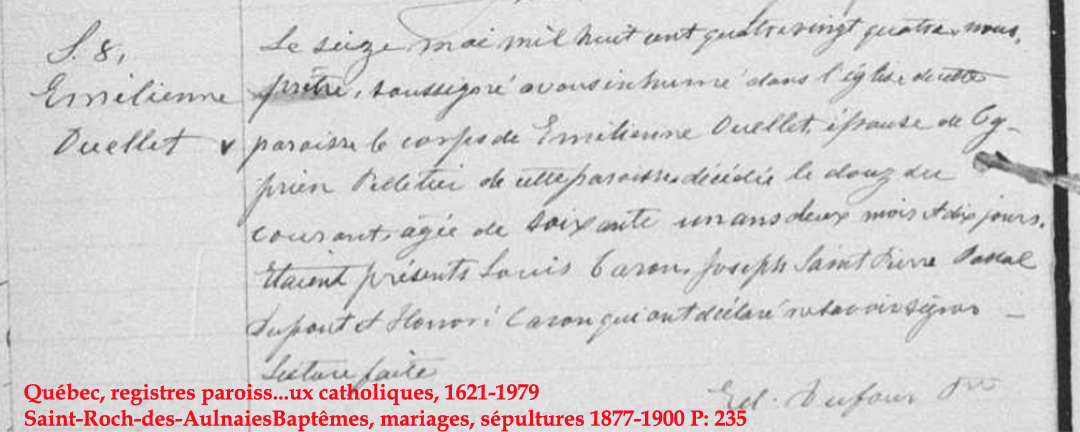 S. 8,
Emilienne
Ouellet
Le seize mai mil huit cent quatre vingt quatre, nous,
prêtre, soussigné avons inhumé dans l'église de cette
paroisse le corps de Emilienne Ouellet, épouse de Cy-
prien Pelletier de cette paroisse décédée le douz du
courant, agée de soixante un ans deux mois et dix jours.
Etaient présents Louis Caron, Joseph Saint Pierre Pascal
Dupont et Honoré Caron qui ont déclaré ne savoir signer
Lecture faite
Ed. Dufour Ptr
Québec, registres paroiss...ux catholiques, 1621-1979
Saint-Roch-des-AulnaiesBaptêmes, mariages, sépultures 1877-1900 P: 235